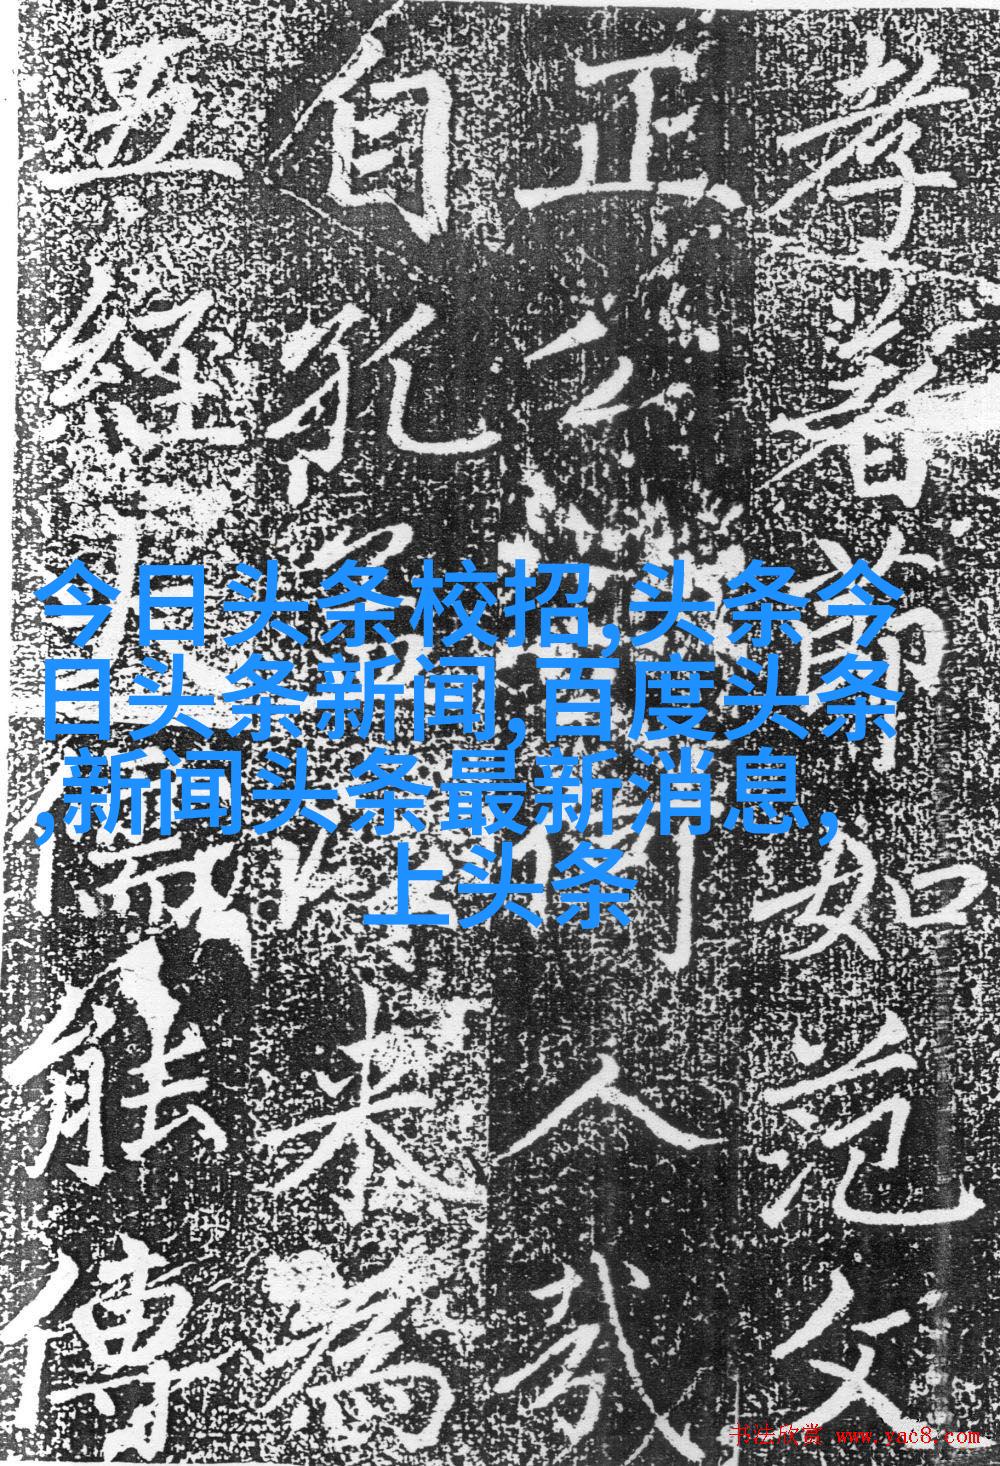 孝者節如范文
正公
人哉
自孔
來為
五經大儒能傳
今日头条校招,头条今
日头条新闻,百度头条
,新闻头条最新消息,
上头条
书法欣赏 www.yac8.com